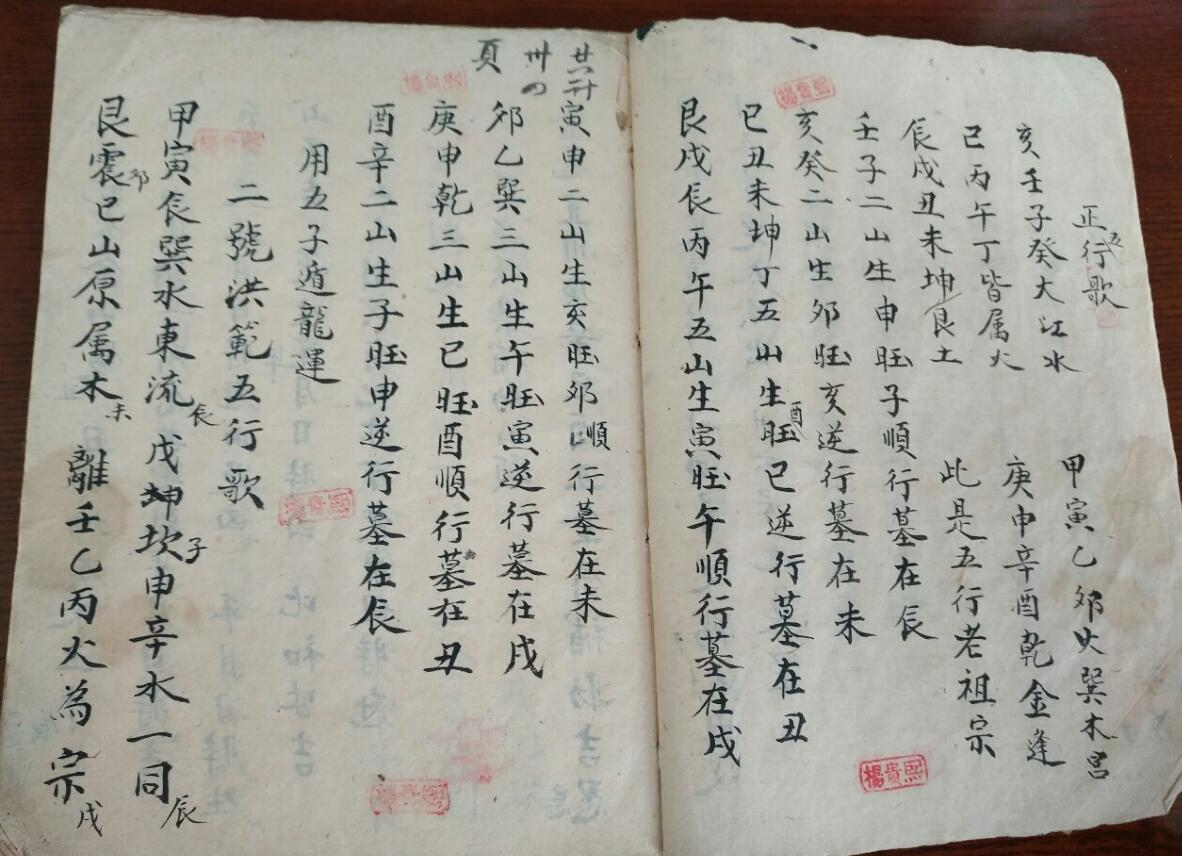 正五行歌
亥壬子癸大江水　甲寅乙夘火巽木宫
巳丙午丁皆属火　庚申辛酉乾金逢
辰戌丑未坤艮土　此是五行老祖宗
壬子二山生申旺子順行墓在辰
亥癸二山生夘旺亥逆行墓在未
巳丑未坤丁五山生酉旺巳逆行墓在丑
艮戌辰丙午五山生寅旺午順行墓在戌
楊貴熙
楊貴熙
卅
頁
寅申二山生亥旺夘順行墓在未
夘乙巽三山生午旺寅逆行墓在戌
庚申乾三山生巳旺酉順行墓在丑
酉辛二山生子旺申逆行墓在辰
用五子遁龍運
二號洪範五行歌
甲寅辰巽水東流辰戊坤坎子申辛水一同辰
艮震夘巳山原属木未　離壬乙丙火為宗戌
楊貴熙
楊貴熙
楊貴熙
楊貴熙